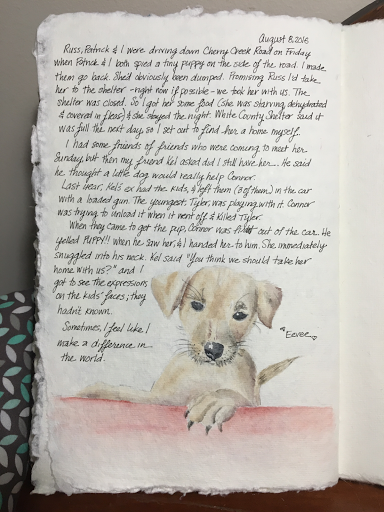 August 8, 2016
Russ, Patrick & I were driving down Cherry Creek Road on Friday
when Patrick & I both spied a tiny puppy on the side of the road. I made
them go back. She'd obviously been dumped. Promising Russ I'd take
her to the shelter - right now if possible - we took her with us. The
shelter was closed. So I got her some food (she was starving, dehydrated
& covered in fleas) & she stayed the night. White County Shelter said it
was full the next day, so I set out to find her a home myself.
I had some friends of friends who were coming to meet her
Sunday, but then my friend Kel asked did I still have her... He said
he thought a little dog would really help Connor.
Last year, Kel's ex had the kids, & left them (3 of them) in the car
with a loaded gun. The youngest, Tyler, was playing with it. Connor
was trying to unload it when it went off & killed Tyler.
When they came to get the pup, Connor was first out of the car. He
yelled PUPPY!! when he saw her, & I handed her to him. She immediately
snuggled into his neck. Kel said "You think we should take her
home with us?" and I
got to see the expressions
on the kids' faces; they
hadn't known.
Sometimes, I feel like I
make a difference in
the world.
"Eevee"